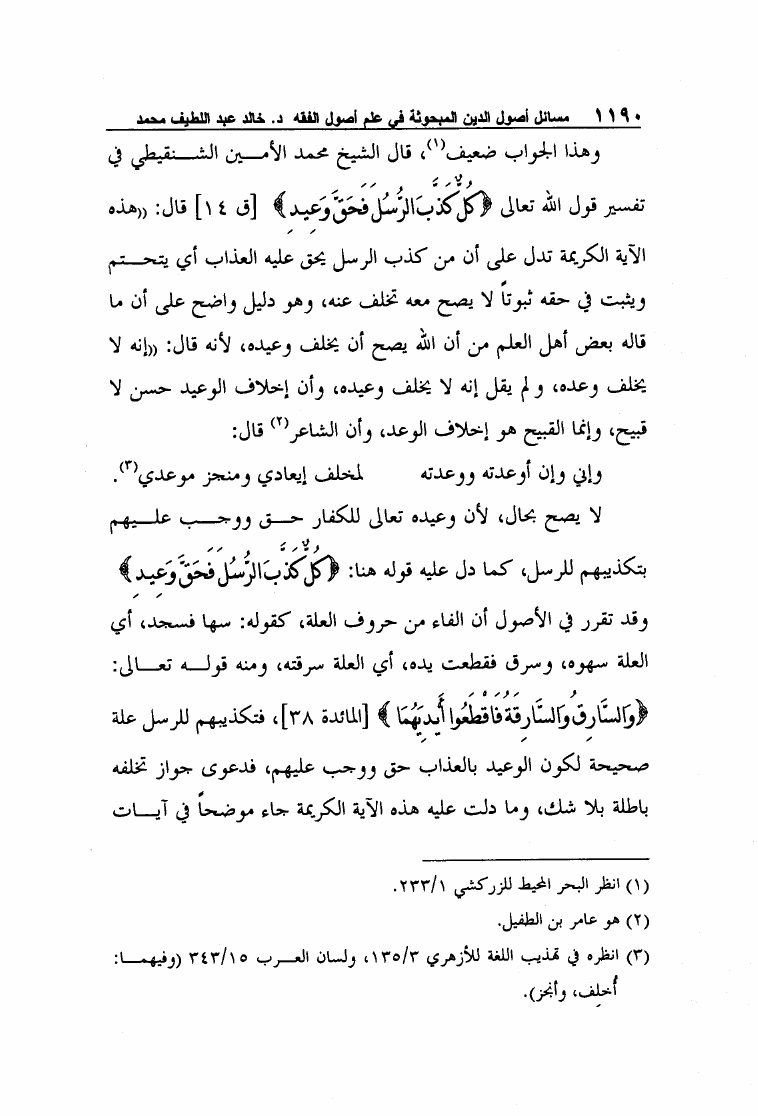 ١١٩٠ مسائل أصول الدين المبحوثة في علم أصول الفقه د. خالد عبد اللطيف محمد
وهذا الجواب ضعيف(١)، قال الشيخ محمد الأمــين الشــنقيطي في
تفسير قول الله تعالى ﴿كُلٌّ كَذَّبَ الرُّسُلَ فَحَقَّ وَعِيدِ﴾ [ق ١٤] قال: ((هذه
الآية الكريمة تدل على أن من كذب الرسل يحق عليه العذاب أي يتحــتم
ويثبت في حقه ثبوتاً لا يصح معه تخلف عنه، وهو دليل واضح على أن ما
قاله بعض أهل العلم من أن الله يصح أن يخلف وعيده، لأنه قال: ((إنه لا
يخلف وعده، ولم يقل إنه لا يخلف وعيده، وأن إخلاف الوعيد حسن لا
قبيح، وإنما القبيح هو إخلاف الوعد، وأن الشاعر(٢) قال:
وإني وإن أوعدته ووعدته لمخلف إيعادي ومنجز موعدي(٣).
لا يصح بحال، لأن وعيده تعالى للكفار حــق ووجــب علــيهم
بتكذيبهم للرسل، كما دل عليه قوله هنا: ﴿كُلٌّ كَذَّبَ الرُّسُلَ فَحَقَّ وَعِيدِ﴾
وقد تقرر في الأصول أن الفاء من حروف العلة، كقوله: سها فسجد، أي
العلة سهوه، وسرق فقطعت يده، أي العلة سرقته، ومنه قولــه تعــالى:
﴿وَالسَّارِقُ وَالسَّارِقَةُ فَاقْطَعُوا أَيْدِيَهُمَا﴾ [المائدة ٣٨]، فتكذيبهم للرسل علة
صحيحة لكون الوعيد بالعذاب حق ووجب عليهم، فدعوى جواز تخلفه
باطلة بلا شك، وما دلت عليه هذه الآية الكريمة جاء موضحاً في آيــات
(١) انظر البحر المحيط للزركشي ٢٣٣/١.
(٢) هو عامر بن الطفيل.
(٣) انظره في تهذيب اللغة للأزهري ١٣٥/٣، ولسان العــرب ٣٤٣/١٥ (وفيهمــا:
أُخلِف، وأنجز).